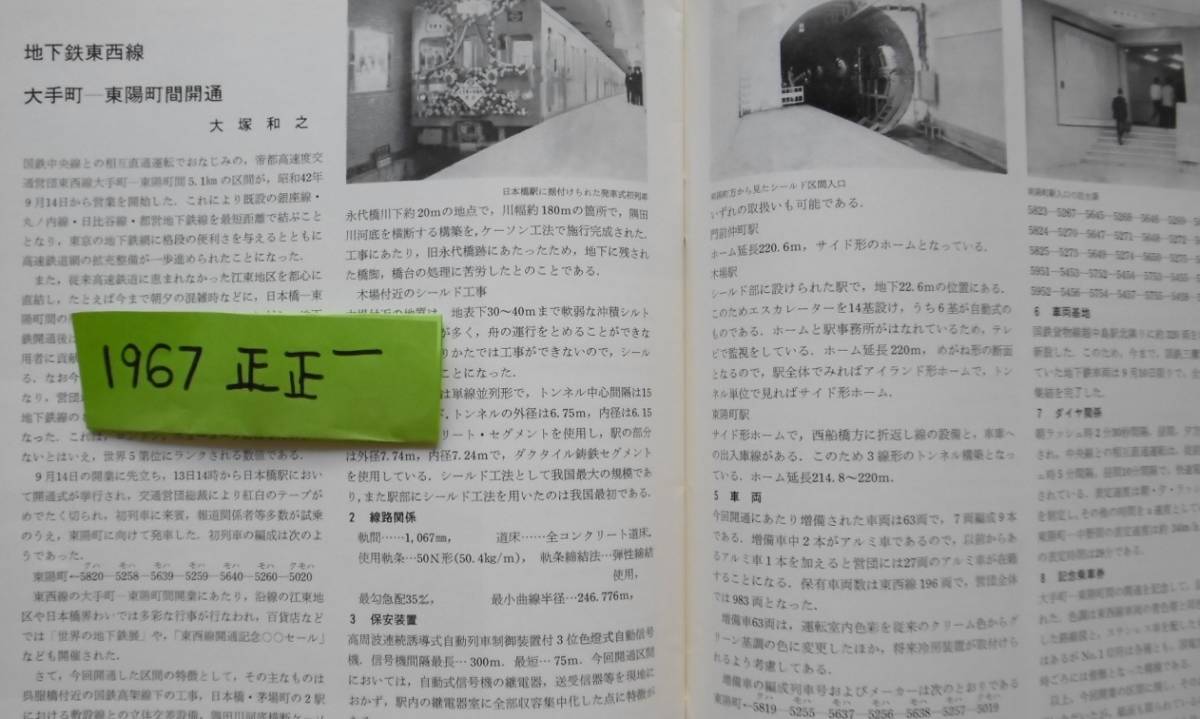 地下鉄東西線
大手町―東陽町間開通
大塚和之
国鉄中央線との相互直通運転でおなじみの，帝都高速度交
通営団東西線大手町―東陽町間5.1kmの区間が，昭和42年
9月14日から営業を開始した．これにより既設の銀座線・
丸ノ内線・日比谷線・都営地下鉄線を最短距離で結ぶこと
となり，東京の地下鉄網に格段の便利さを与えるとともに
高速鉄道網の拡充整備が一歩進められたことになった．
また，従来高速鉄道に恵まれなかった江東地区を都心に
直結し，たとえば今まで朝夕の混雑時などに，日本橋―東
陽町間の
鉄開通後は
用者に貢献
る．なお今
なり，営団
地下鉄線の
なった．これは
ないとはいえ，世界5第位にランクされる数値である．
9月14日の開業に先立ち，13日14時から日本橋駅におい
て開通式が挙行され，交通営団総裁により紅白のテープが
めでたく切られ，初列車に来賓，報道関係者等多数が試乗
のうえ，東陽町に向けて発車した．初列車の編成は次のよ
うであった．
クハ モハ モハ モハ モハ モハ クモハ
東陽町←5820―5258―5639―5259―5640―5260―5020
東西線の大手町―東陽町間開業にあたり，沿線の江東地
区や日本橋界わいでは多彩な行事が行なわれ，百貨店など
では「世界の地下鉄展」や，「東西線開通記念○○セール」
なども開催された．
さて，今回開通した区間の特徴として，その主なものは
呉服橋付近の国鉄高架線下の工事，日本橋・茅場町の2駅
における敷設線との立体交差設備，隅田川河底横断ケーソ
1967 正正一
日本橋駅に据付けられた発車式初列車
永代橋川下約20mの地点で，川幅約180mの箇所で，隅田
川河底を横断する構築を，ケーソン工法で施行完成された．
工事にあたり，旧永代橋跡にあたったため，地下に残され
た橋脚，橋台の処理に苦労したとのことである．
木場付近のシールド工事
木場付近の地質は，地表下30～40mまで軟弱な沖積シルト
が多く，舟の運行をとめることができな
りかたでは工事ができないので，シール
ことになった．
は単線並列形で，トンネル中心間隔は15
トンネルの外径は6.75m，内径は6.15
リート・セグメントを使用し，駅の部分
は外径7.74m，内径7.24mで，ダクタイル鋳鉄セグメント
を使用している．シールド工法として我国最大の規模であ
り，また駅部にシールド工法を用いたのは我国最初である．
2 線路関係
軌間……1,067mm， 道床……全コンクリート道床，
使用軌条…50Nレ形(50.4kg/m)，軌条締結法…弾性締結
使用，
最勾急配35‰， 最小曲線半径…246.776m，
3 保安装置
高周波連続誘導式自動列車制御装置付3位色燈式自動信号
機．信号機間隔最長…300m．最短…75m．今回開通区間
においては，自動式信号機の継電器，送受信器等を現地に
おかず，駅内の継電器室に全部収容集中化した点に特徴が
ある．
町方から見たシールド区間入口
いずれの取扱いも可能である．
門前仲町駅
ホーム延長220.6m，サイド形のホームとなっている．
木場駅
シールド部に設けられた駅で，地下22.6mの位置にある．
このためエスカレーターを14基設け，うち6基が自動式の
ものである．ホームと駅事務所がはなれているため，テレ
ビで監視をしている．ホーム延長220m，めがね形の断面
となるので，駅全体でみればアイランド形ホームで，トン
ネル単位で見ればサイド形ホーム．
東陽町駅
サイド形ホームで，西船橋方に折返し線の設備と，車庫へ
の出入庫線がある．このため3線形のトンネル構築となっ
ている．ホーム延長214.8～220m．
5 車両
今回開通にあたり増備された車両は63両で，7両編成9本
である．増備車中2本がアルミ車であるので，以前からあ
るアルミ車1本を加えると営団には27両のアルミ車が在籍
することになる．保有車両数は東西線196両で，営団全体
では983両となった．
増備車63両は，運転室内色彩を従来のクリーム色からグ
リーン基調の色に変更したほか，将来冷房装置が取付けら
れるよう考慮してある．
増備車の編成列車号およびメーカーは次のとおりである
クハ モハ モハ モハ モハ モハ クモハ
東陽町←5819 5255 5637 5256 5638 5257 5019
5823―5267―5645―5268―5646―5269
5824―5270―5647―5271―5648―5272
5825―5273―5649―5274―5650―5275
5951―5453―5752―5454―5753―5455
5952―5456―5754―5457―5755―5458
6 車両基地
7 ダイヤ関係
8 記念乗車券